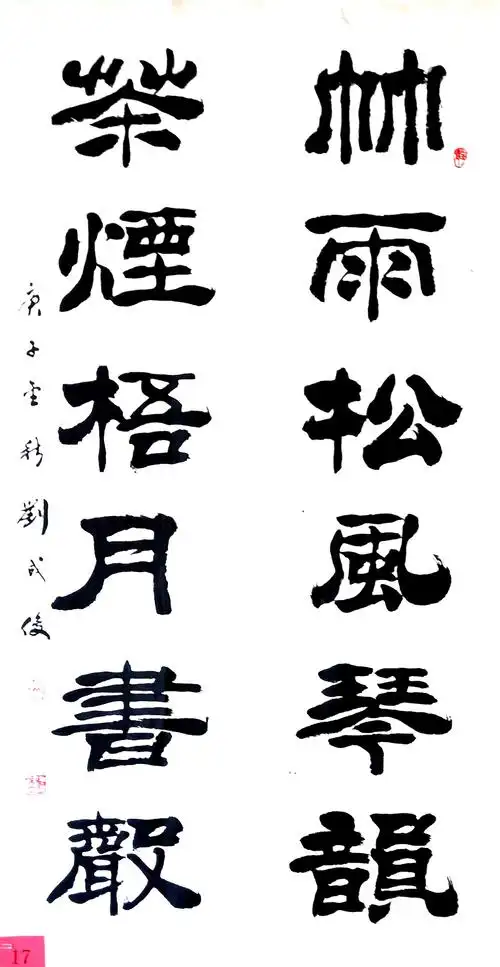 竹雨松風琴韻
茶煙梧月書聲
庚子金秋劉成俊
17